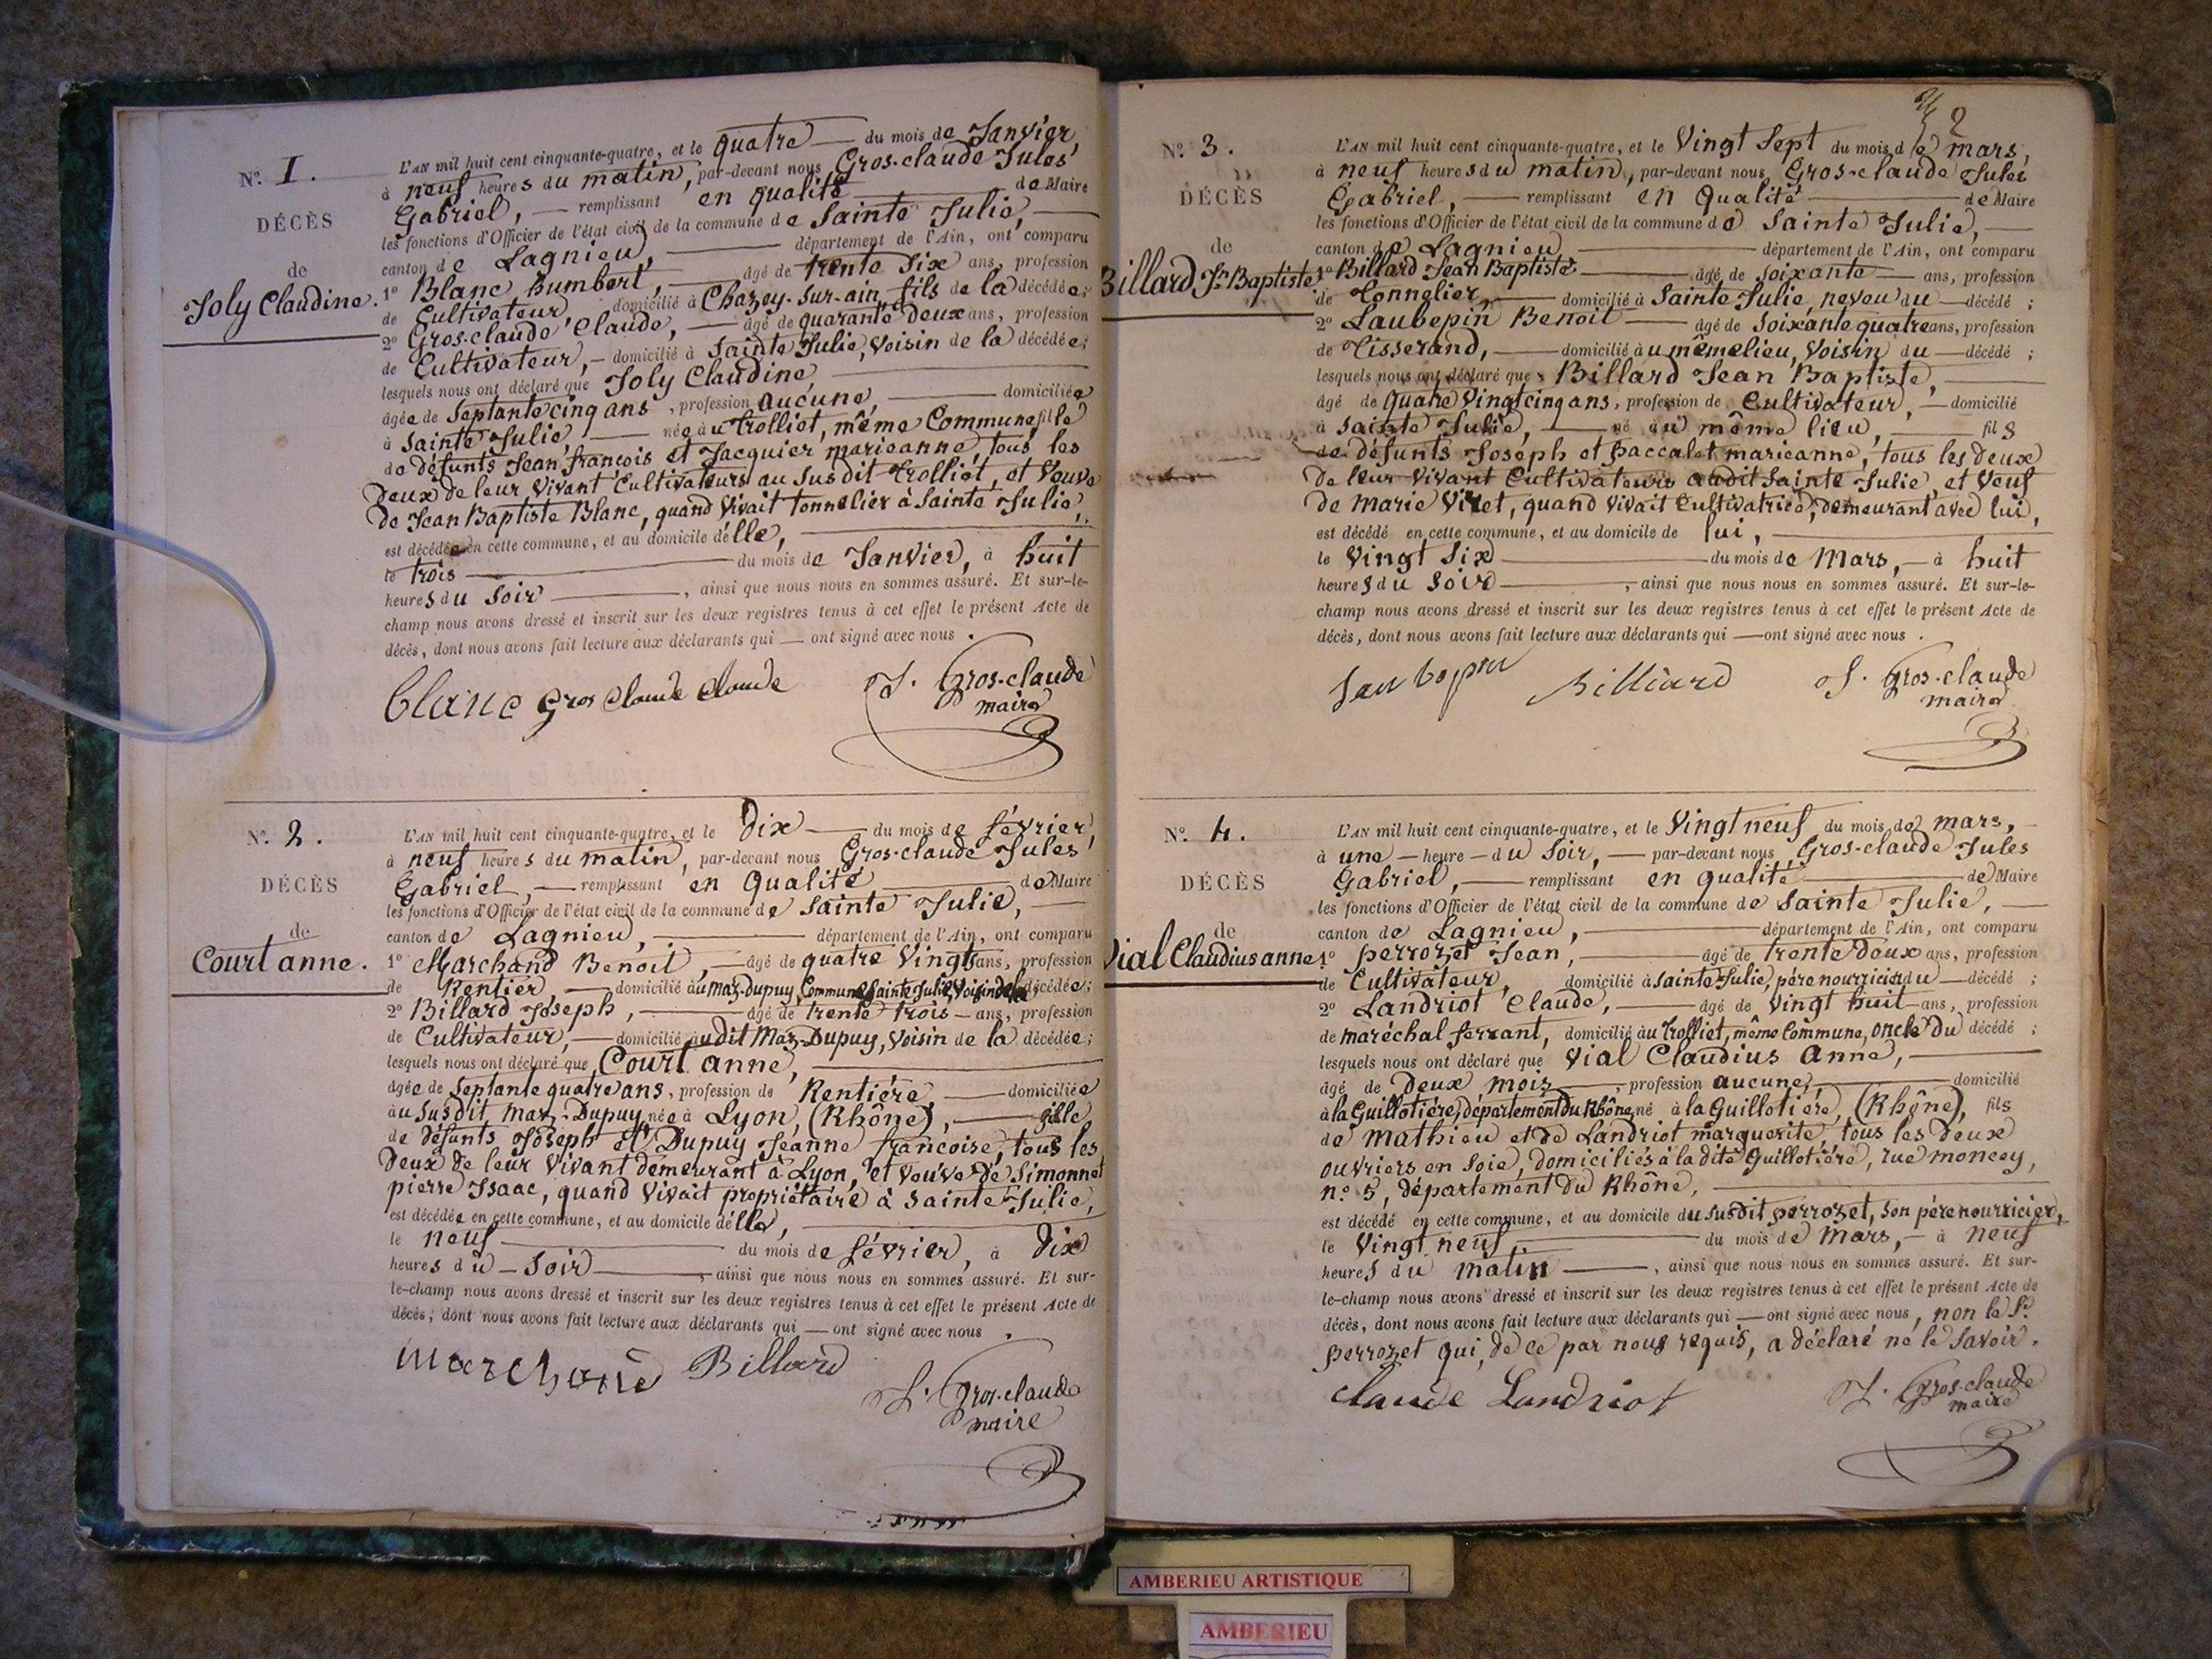 N.° 1.
DÉCÈS
de
Joly Claudine.
L'AN mil huit cent cinquante-quatre, et le quatre du mois de Janvier,
à neuf heures du matin, par-devant nous Gros-claude Jules
Gabriel, remplissant en qualité de Maire
les fonctions d'Officier de l'état civil de la commune de Sainte Julie,
canton de Lagnieu, département de l'Ain, ont comparu
1° Blanc humbert, âgé de trente Six ans, profession
de Cultivateur, domicilié à Chazey-Sur-ain, fils de la décédée;
2° Gros-claude Claude, âgé de quarante Deux ans, profession
de Cultivateur, domicilié à Sainte Julie, Voisin de la décédée;
lesquels nous ont déclaré que Joly Claudine,
âgée de Septante cinq ans, profession aucune, domiciliée
à Sainte Julie, née au trolliet, même Commune, fille
de défunts Jean françois et Jacquier marieanne, tous les
Deux de leur Vivant Cultivateurs au Susdit trolliet, et Veuve
de Jean Baptiste Blanc, quand Vivait tonnelier à Sainte Julie,
est décédée en cette commune, et au domicile d'elle,
le trois du mois de Janvier, à huit
heures du Soir, ainsi que nous nous en sommes assuré. Et sur-le-
champ nous avons dressé et inscrit sur les deux registres tenus à cet effet le présent Acte de
décès, dont nous avons fait lecture aux déclarants qui ont signé avec nous.
blanc Gros Claude Claude J. Gros-claude
maire
N.° 2.
DÉCÈS
de
Court anne.
L'AN mil huit cent cinquante-quatre, et le Dix du mois de février,
à neuf heures du matin, par-devant nous Gros-claude Jules
Gabriel, remplissant en Qualité de Maire
les fonctions d'Officier de l'état civil de la commune de Sainte Julie,
canton de Lagnieu, département de l'Ain, ont comparu
1° Marchand Benoit, âgé de quatre Vingts ans, profession
de Rentier domicilié au Maz-Dupuy, Commune Sainte Julie, Voisin de la décédée;
2° Billard Joseph, âgé de trente trois ans, profession
de Cultivateur, domicilié audit Maz-Dupuy, Voisin de la décédée;
lesquels nous ont déclaré que Court anne,
âgée de Septante quatre ans, profession de Rentière, domiciliée
au Susdit Maz-Dupuy née à Lyon, (Rhône), fille
de défunts Joseph et Dupuy Jeanne françoise, tous les
Deux de leur Vivant demeurant à Lyon, et veuve de Simonnet
pierre Isaac, quand Vivait propriétaire à Sainte Julie,
est décédée en cette commune, et au domicile d'elle,
le neuf du mois de février, à Dix
heures du Soir, ainsi que nous nous en sommes assuré. Et sur-
le-champ nous avons dressé et inscrit sur les deux registres tenus à cet effet le présent Acte de
décès, dont nous avons fait lecture aux déclarants qui ont signé avec nous.
Marchand Billard J. Gros-claude
maire
2
N.° 3.
DÉCÈS
de
Billard Jn Baptiste
L'AN mil huit cent cinquante-quatre, et le Vingt Sept du mois de mars,
à neuf heures du matin, par-devant nous Gros-claude Jules
Gabriel, remplissant en Qualité de Maire
les fonctions d'Officier de l'état civil de la commune de Sainte Julie,
canton de Lagnieu département de l'Ain, ont comparu
1° Billard Jean Baptiste âgé de Soixante ans, profession
de Tonnelier, domicilié à Sainte Julie, neveu du décédé;
2° Laubepin Benoit âgé de Soixante quatre ans, profession
de Tisserand, domicilié au même lieu, Voisin du décédé;
lesquels nous ont déclaré que Billard Jean Baptiste,
âgé de Quatre Vingt cinq ans, profession de Cultivateur, domicilié
à Sainte Julie, né au même lieu, fils
de défunts Joseph et Baccalet marieanne, tous les deux
De leur Vivant Cultivateurs audit Sainte Julie, et Veuf
de Marie Viret, quand Vivait Cultivatrice, demeurant avec lui,
est décédé en cette commune, et au domicile de lui,
le Vingt Six du mois de Mars, à huit
heures du Soir, ainsi que nous nous en sommes assuré. Et sur-le-
champ nous avons dressé et inscrit sur les deux registres tenus à cet effet le présent Acte de
décès, dont nous avons fait lecture aux déclarants qui ont signé avec nous.
Billiard J. Gros-claude
maire
N.° 4.
DÉCÈS
de
Vial Claudius anne
L'AN mil huit cent cinquante-quatre, et le Vingt neuf du mois de mars,
à une heure du Soir, par-devant nous Gros-claude Jules
Gabriel, remplissant en qualité de Maire
les fonctions d'Officier de l'état civil de la commune de Sainte Julie,
canton de Lagnieu, département de l'Ain, ont comparu
1° perrozet Jean, âgé de trente Deux ans, profession
de Cultivateur, domicilié à Sainte Julie, père nourricier du décédé;
2° Landriot Claude, âgé de Vingt huit ans, profession
de maréchal ferrant, domicilié au Trolliet, même Commune, oncle Du décédé;
lesquels nous ont déclaré que Vial Claudius Anne,
âgé de Deux mois, profession aucune, domicilié
à la Guillotière, département du Rhône, né à la Guillotière, (Rhône), fils
de Mathieu et de Landriot marguerite, tous les Deux
ouvriers en Soie, domiciliés à la dite Guillotière, rue moncey,
n.° 5, département du Rhône,
est décédé en cette commune, et au domicile du susdit perrozet, Son père nourricier,
le Vingt neuf du mois de Mars, à neuf
heures du matin, ainsi que nous nous en sommes assuré. Et sur-
le-champ nous avons dressé et inscrit sur les deux registres tenus à cet effet le présent Acte de
décès, dont nous avons fait lecture aux déclarants qui ont signé avec nous, non le Sr
perrozet qui, de ce par nous requis, a déclaré ne le Savoir.
Claude Landriot J. Gros-claude
maire
AMBERIEU ARTISTIQUE
AMBERIEU